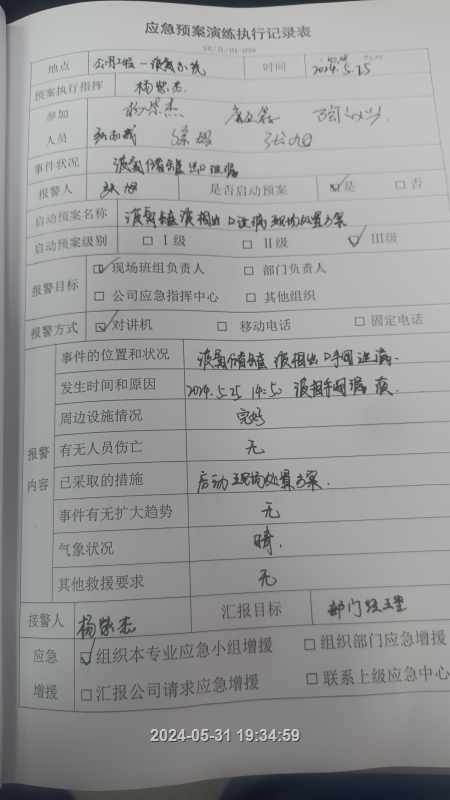 应急预案演练执行记录表
地点 公用工程—液氨系统 时间 2024.5.25
预案执行指挥 杨荣杰
参加
人员
事件状况 液氨储罐出口泄漏
报警人 是否启动预案 ☑是 □否
启动预案名称 液氨储罐液相出口泄漏现场处置方案
启动预案级别 □I级 □II级 ☑III级
报警目标 ☑现场班组负责人 □部门负责人
□公司应急指挥中心 □其他组织
报警方式 ☑对讲机 □移动电话 □固定电话
报警内容
事件的位置和状况 液氨储罐液相出口手阀泄漏.
发生时间和原因 2024.5.25 14:50 液相手阀漏液.
周边设施情况 完好
有无人员伤亡 无
已采取的措施 启动现场处置方案.
事件有无扩大趋势 无
气象状况 晴.
其他救援要求 无
接警人 杨荣杰 汇报目标 部门经理
应急增援
☑组织本专业应急小组增援 □组织部门应急增援
□汇报公司请求应急增援 □联系上级应急中心
2024-05-31 19:34:59